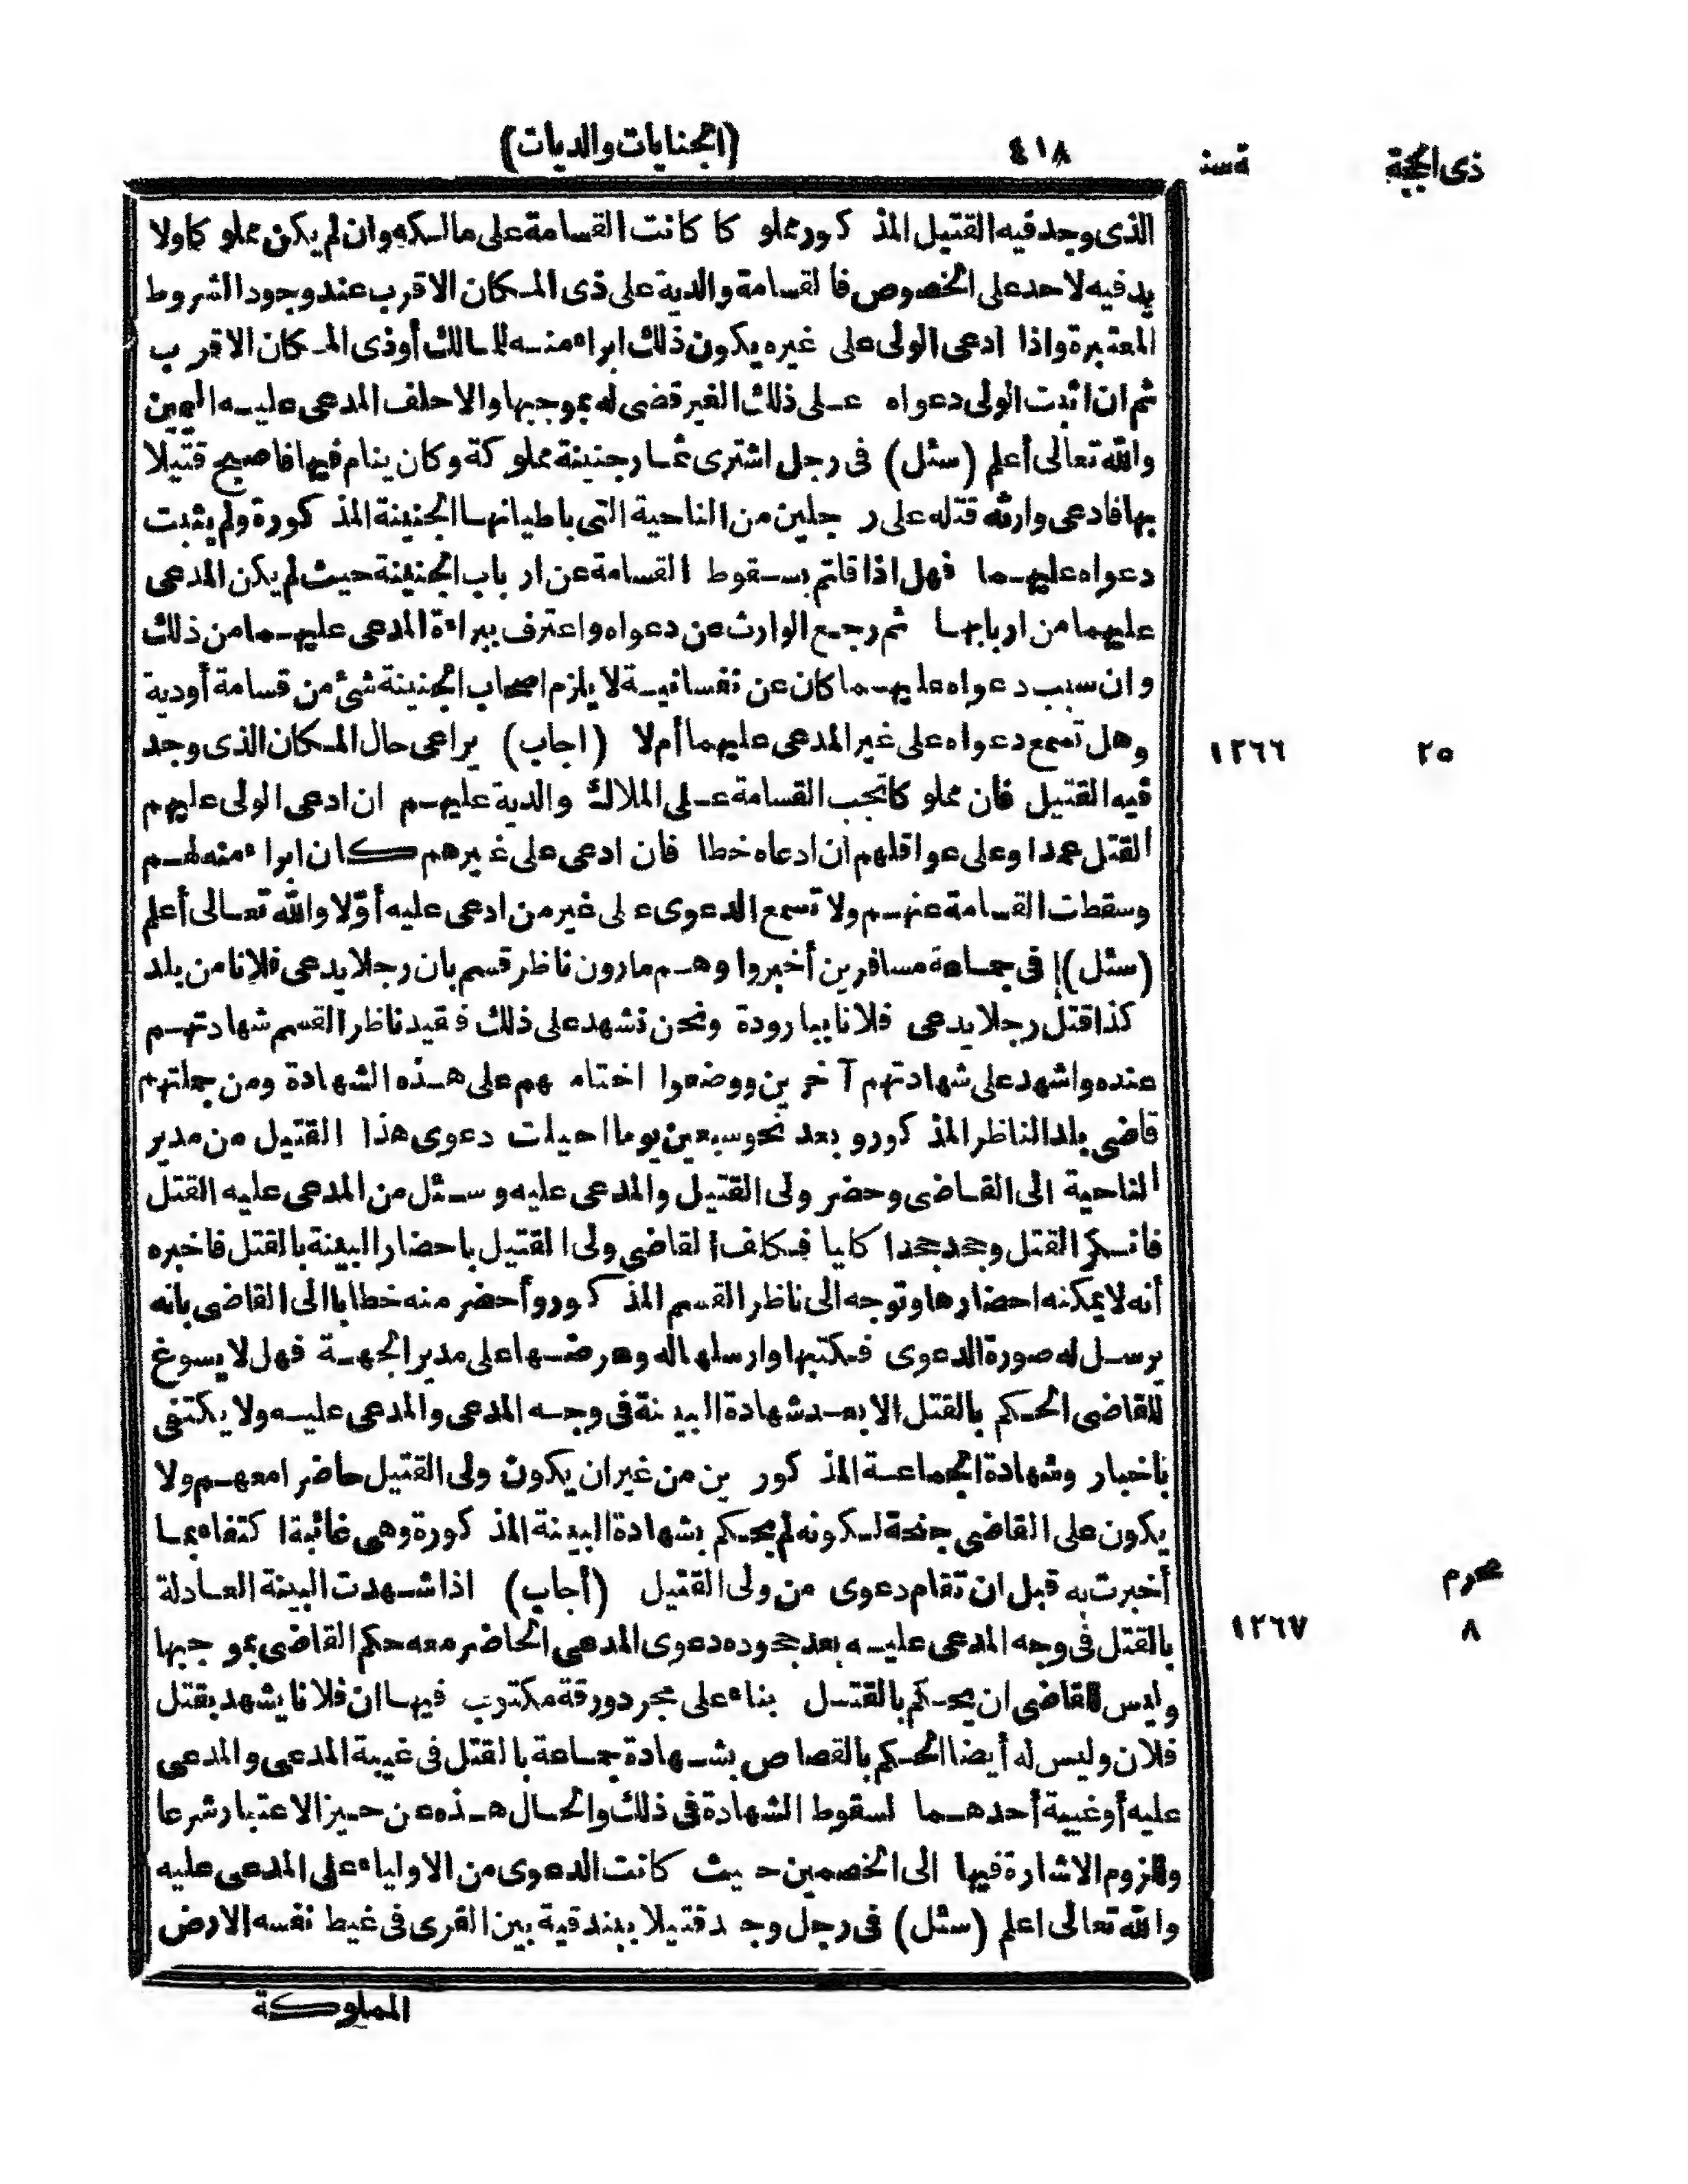 ذى الحجة سنة ٤١٨ (الجنايات والديات)
الذى وجد فيه القتيل المذكور مملوكا كانت القسامة على مالكه وان لم يكن مملوكا ولا
يد فيه لاحد على الخصوص فالقسامة والدية على ذى المكان الاقرب عند وجود الشروط
المعتبرة واذا ادعى الولى على غيره يكون ذلك ابراء منه للمالك أو ذى المكان الاقرب
ثم ان اثبت الولى دعواه على ذلك الغير قضى له بموجبها والا حلف المدعى عليه اليمين
والله تعالى أعلم (سئل) فى رجل اشترى ثمار جنينة مملوكة وكان ينام فيها فاصبح قتيلا
بها فادعى وارثه قتله على رجلين من الناحية التى باطيانها الجنينة المذكورة ولم يثبت
دعواه عليهما فهل اذا قلتم بسقوط القسامة عن ارباب الجنينة حيث لم يكن المدعى
عليهما من اربابها ثم رجع الوارث عن دعواه واعترف ببراءة المدعى عليهما من ذلك
وان سبب دعواه عليهما كان عن نفسانية لا يلزم اصحاب الجنينة شئ من قسامة أو دية
وهل تسمع دعواه على غير المدعى عليهما أم لا (اجاب) يراعى حال المكان الذى وجد
٢٥ ١٢٦٦
فيه القتيل فان مملوكا تجب القسامة على الملاك والدية عليهم ان ادعى الولى عليهم
القتل عمدا وعلى عواقلهم ان ادعاه خطا فان ادعى على غيرهم كان ابراء منه لهم
وسقطت القسامة عنهم ولا تسمع الدعوى على غير من ادعى عليه أوّلا والله تعالى أعلم
(سئل) فى جماعة مسافرين أخبروا وهم مارون ناظر قسم بان رجلا يدعى فلانا من بلد
كذا قتل رجلا يدعى فلانا ببارودة ونحن نشهد على ذلك فقيد ناظر القسم شهادتهم
عنده واشهد على شهادتهم آخرين ووضعوا اختامهم على هذه الشهادة ومن جملتهم
قاضى بلد الناظر المذكور و بعد نحو سبعين يوما احيلت دعوى هذا القتيل من مدير
الناحية الى القاضى وحضر ولى القتيل والمدعى عليه و سئل من المدعى عليه القتل
فانكر القتل وجحد جحدا كليا فكلف القاضى ولى القتيل باحضار البينة بالقتل فاخبره
أنه لا يمكنه احضارها وتوجه الى ناظر القسم المذكور وأحضر منه خطابا الى القاضى بانه
يرسل له صورة الدعوى فكتبها وارسلها له وعرضها على مدير الجهة فهل لا يسوغ
للقاضى الحكم بالقتل الا بعد شهادة البينة فى وجه المدعى والمدعى عليه ولا يكتفى
باخبار وشهادة الجماعة المذكورين من غير ان يكون ولى القتيل حاضرا معهم ولا
يكون على القاضى جنحة لكونه لم يحكم بشهادة البينة المذكورة وهى غائبة اكتفاء بما
أخبرت به قبل ان تقام دعوى من ولى القتيل (أجاب) اذا شهدت البينة العادلة
محرم
بالقتل فى وجه المدعى عليه بعد جحوده دعوى المدعى الحاضر معه حكم القاضى بموجبها
٨ ١٢٦٧
وليس للقاضى ان يحكم بالقتل بناء على مجرد ورقة مكتوب فيها ان فلانا يشهد بقتل
فلان وليس له أيضا الحكم بالقصاص بشهادة جماعة بالقتل فى غيبة المدعى والمدعى
عليه أو غيبة أحدهما لسقوط الشهادة فى ذلك والحال هذه عن حيز الاعتبار شرعا
ولزوم الاشارة فيها الى الخصمين حيث كانت الدعوى من الاولياء على المدعى عليه
والله تعالى اعلم (سئل) فى رجل وجد قتيلا ببندقية بين القرى فى غيط نفسه الارض
المملوكة